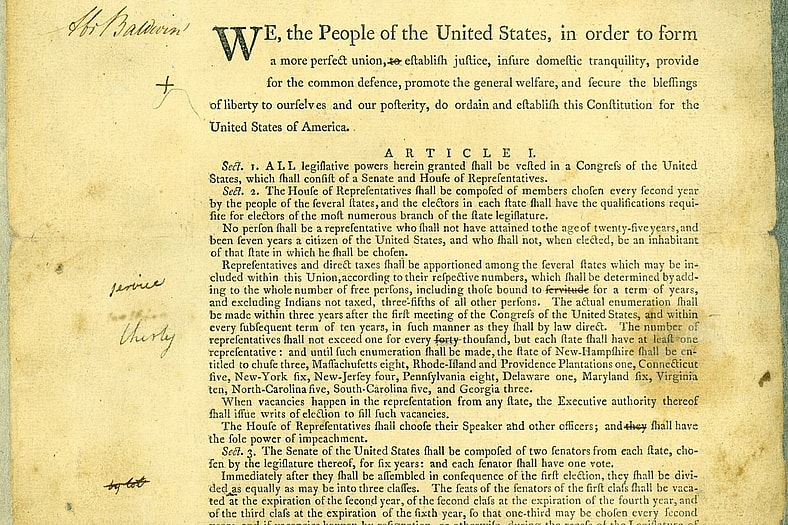 Abr Baldwin
WE, the People of the United States, in order to form
a more perfect union, to eſtabliſh juſtice, inſure domeſtic tranquility, provide
for the common defence, promote the general welfare, and ſecure the bleſſings
of liberty to ourſelves and our poſterity, do ordain and eſtabliſh this Conſtitution for the
United States of America.
ARTICLE I.
Sect. 1. ALL legiſlative powers herein granted ſhall be veſted in a Congreſs of the United
States, which ſhall conſiſt of a Senate and Houſe of Repreſentatives.
Sect. 2. The Houſe of Repreſentatives ſhall be compoſed of members choſen every ſecond year
by the people of the ſeveral ſtates, and the electors in each ſtate ſhall have the qualifications requi-
ſite for electors of the moſt numerous branch of the ſtate legiſlature.
No perſon ſhall be a repreſentative who ſhall not have attained to the age of twenty-five years, and
been ſeven years a citizen of the United States, and who ſhall not, when elected, be an inhabitant
of that ſtate in which he ſhall be choſen.
Repreſentatives and direct taxes ſhall be apportioned among the ſeveral ſtates which may be in-
cluded within this Union, according to their reſpective numbers, which ſhall be determined by add-
ing to the whole number of free perſons, including thoſe bound to ſervitude for a term of years,
service
and excluding Indians not taxed, three-fifths of all other perſons. The actual enumeration ſhall
be made within three years after the firſt meeting of the Congreſs of the United States, and within
every ſubſequent term of ten years, in ſuch manner as they ſhall by law direct. The number of
repreſentatives ſhall not exceed one for every forty thouſand, but each ſtate ſhall have at leaſt one
thirty
repreſentative: and until ſuch enumeration ſhall be made, the ſtate of New-Hampſhire ſhall be en-
titled to chuſe three, Maſſachuſetts eight, Rhode-Iſland and Providence Plantations one, Connecticut
five, New-York ſix, New-Jerſey four, Pennſylvania eight, Delaware one, Maryland ſix, Virginia
ten, North-Carolina five, South-Carolina five, and Georgia three.
When vacancies happen in the repreſentation from any ſtate, the Executive authority thereof
ſhall iſſue writs of election to fill ſuch vacancies.
The Houſe of Repreſentatives ſhall chooſe their Speaker and other officers; and they ſhall have
the ſole power of impeachment.
Sect. 3. The Senate of the United States ſhall be compoſed of two ſenators from each ſtate, cho-
ſen by the legiſlature thereof, for ſix years: and each ſenator ſhall have one vote.
Immediately after they ſhall be aſſembled in conſequence of the firſt election, they ſhall be divi-
by lot
ded as equally as may be into three claſſes. The ſeats of the ſenators of the firſt claſs ſhall be vaca-
ted at the expiration of the ſecond year, of the ſecond claſs at the expiration of the fourth year, and
of the third claſs at the expiration of the ſixth year, ſo that one-third may be choſen every ſecond